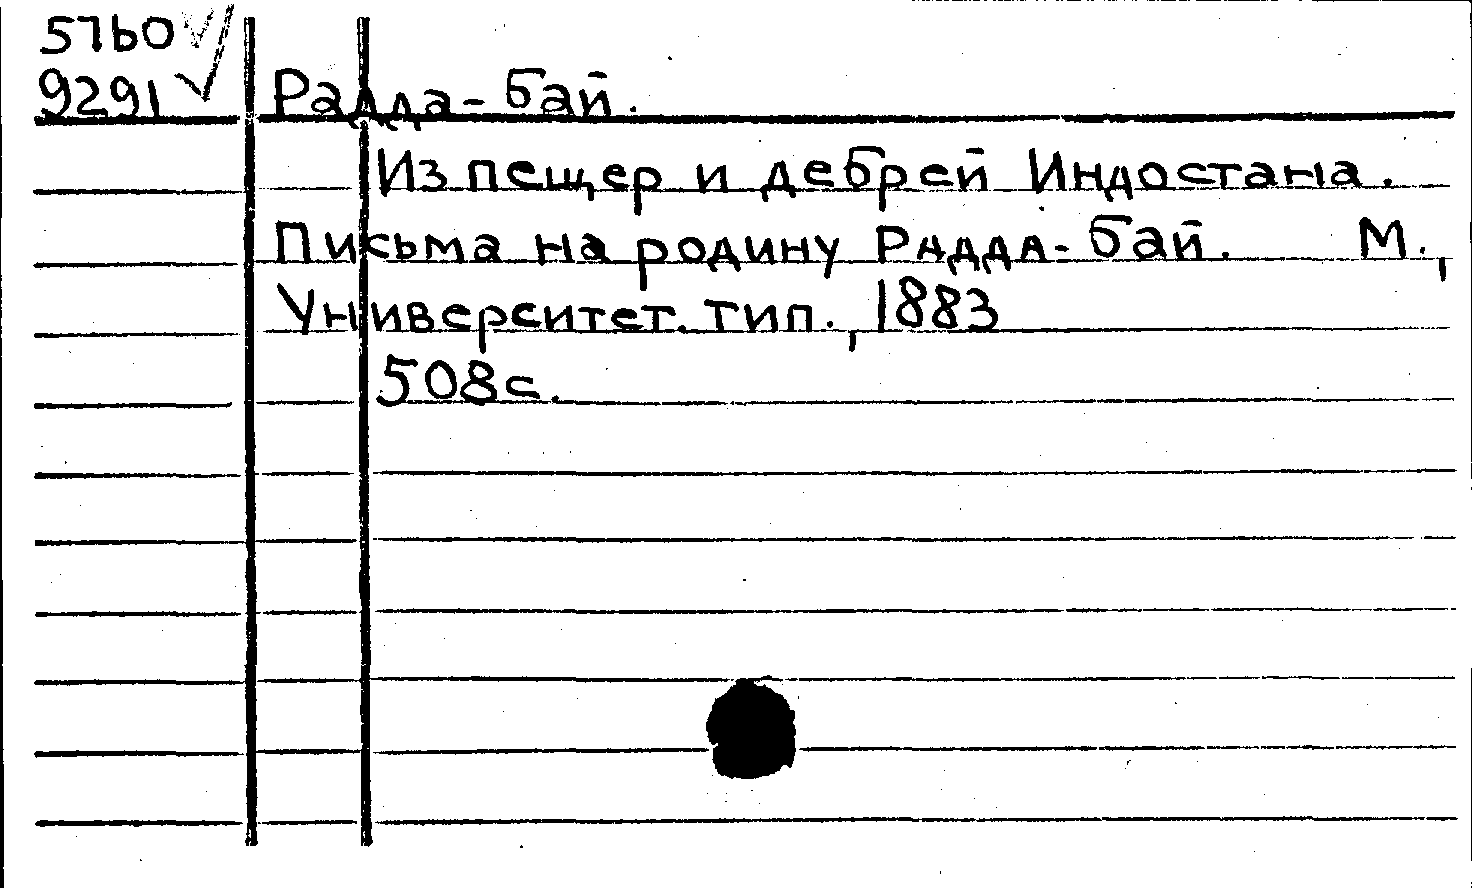 5760
9291
Радда-бай.
Из пещер и дебрей Индостана.
Письма на родину Радда-бай. М.,
Университет. тип., 1883
508 с.